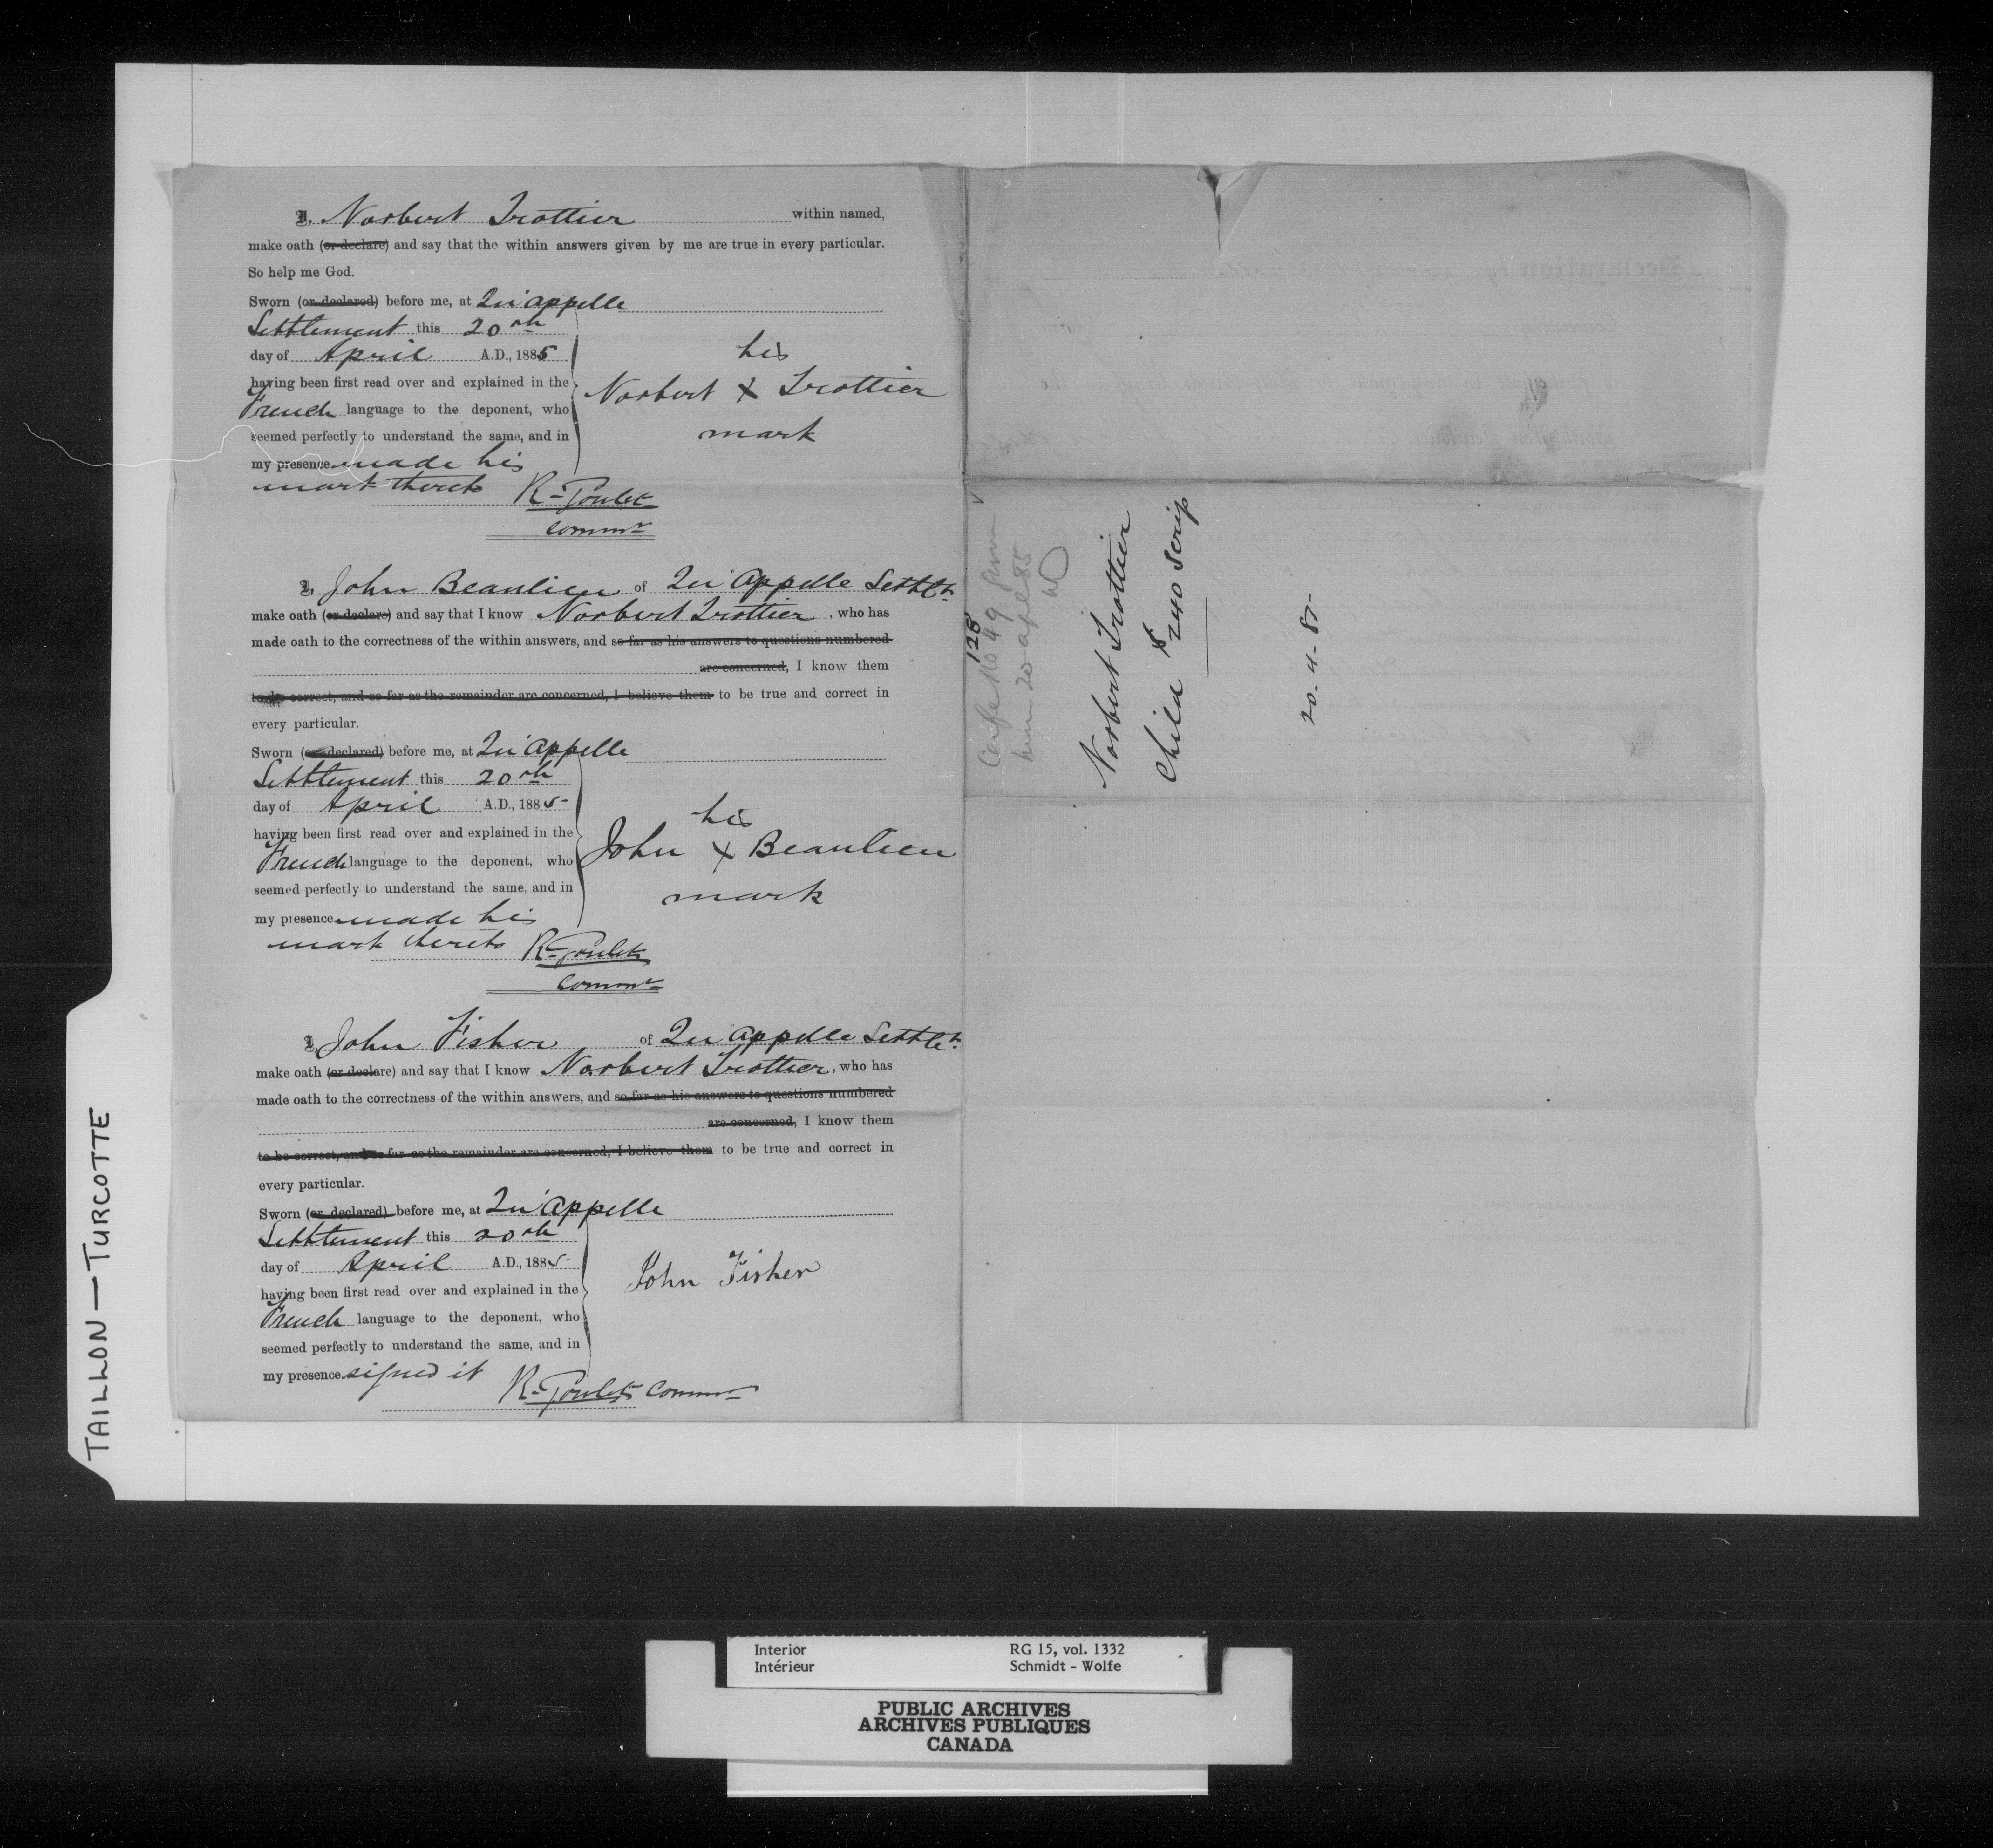 I, Norbert Trottier within named,
make oath (or declare) and say that the within answers given by me are true in every particular.
So help me God.
Sworn (or declared) before me, at Qu'appelle
Settlement this 20th
day of April A.D., 1885
having been first read over and explained in the
French language to the deponent, who
seemed perfectly to understand the same, and in
my presence made his
mark thereto R. Goulet
Commr
his
Norbert X Trottier
mark
I, John Beaulieu of Qu'appelle Settlt.
make oath (or declare) and say that I know Norbert Trottier, who has
made oath to the correctness of the within answers, and so far as his answers to questions numbered
are concerned, I know them
to be correct, and so far as the remainder are concerned, I believe them to be true and correct in
every particular.
Sworn (or declared) before me, at Qu'appelle
Settlement this 20th
day of April A.D., 1885
having been first read over and explained in the
French language to the deponent, who
seemed perfectly to understand the same, and in
my presence made his
mark thereto R. Goulet
Commr
his
John X Beaulieu
mark
I, John Fisher of Qu'appelle Settlt.
make oath (or declare) and say that I know Norbert Trottier, who has
made oath to the correctness of the within answers, and so far as his answers to questions numbered
are concerned, I know them
to be correct, and so far as the remainder are concerned, I believe them to be true and correct in
every particular.
Sworn (or declared) before me, at Qu'appelle
Settlement this 20th
day of April A.D., 1885
having been first read over and explained in the
French language to the deponent, who
seemed perfectly to understand the same, and in
my presence signed it
R. Goulet Commr
John Fisher
128
Certfe No 49 given
him 20 apl 85
Norbert Trottier
Child $240 Scrip
20-4-85-
TAILLON — TURCOTTE
Interior RG 15, vol. 1332
Intérieur Schmidt - Wolfe
PUBLIC ARCHIVES
ARCHIVES PUBLIQUES
CANADA